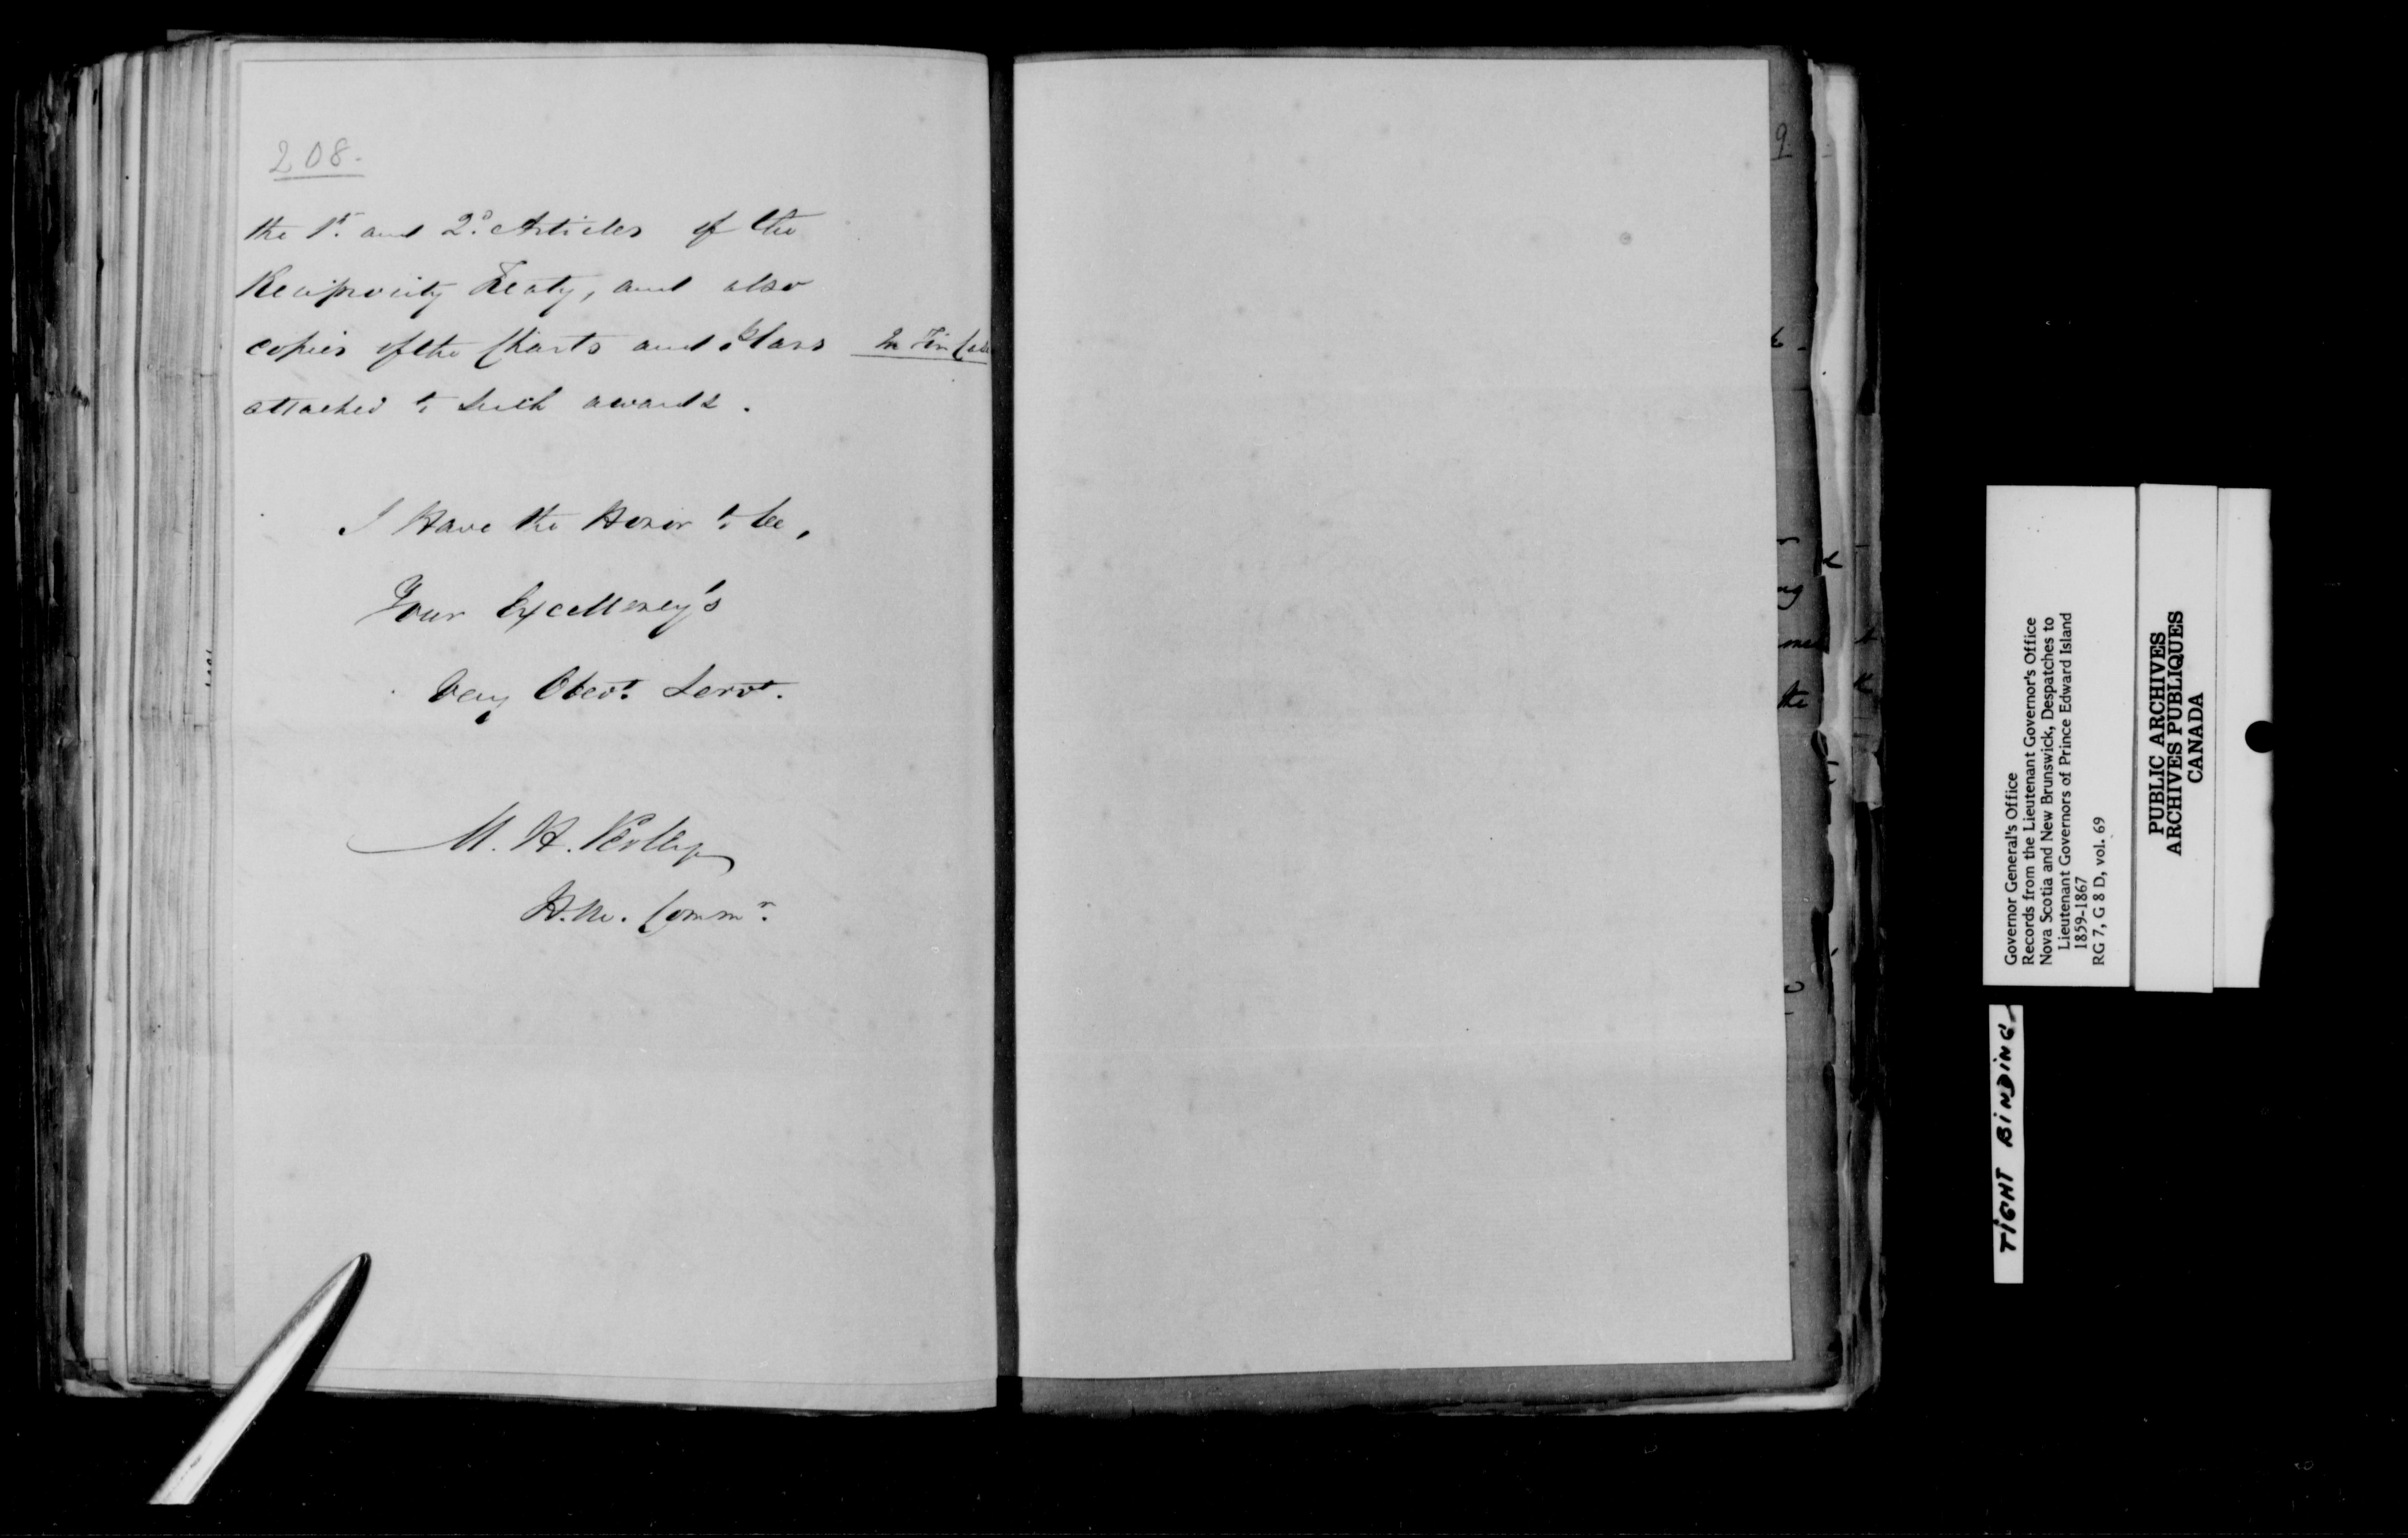 208.
the 1st. and 2d. Articles of the
Reciprocity Treaty, and also
copies of the Charts and Plans In Tin Case
attached to such awards.
I Have the Honor to be,
Your Excellency's
Very Obedt. Servt.
M. H. Perley
H.M. Commr.
the
Governor General's Office
Records from the Lieutenant Governor's Office
Nova Scotia and New Brunswick, Despatches to
Lieutenant Governors of Prince Edward Island
1859-1867
RG 7, G 8 D, vol. 69
PUBLIC ARCHIVES
ARCHIVES PUBLIQUES
CANADA
TIGHT BINDING